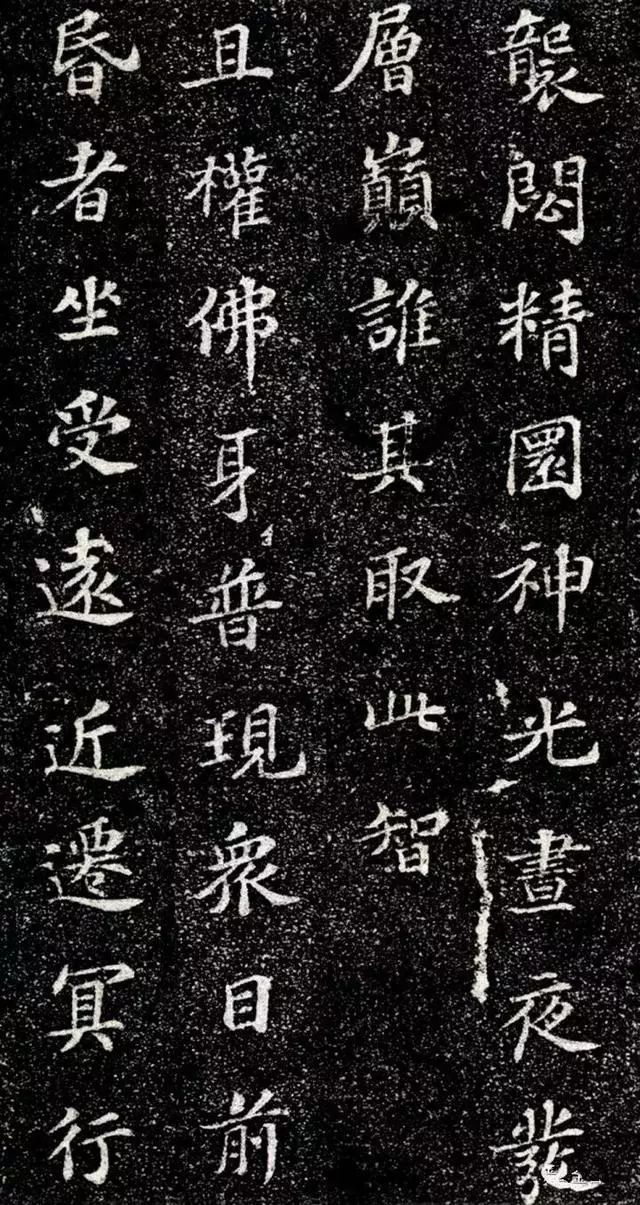 襲閟精圜神光晝夜發
層巔誰其取此智
且權佛身普現衆目前
昬者坐受遠近遷冥行